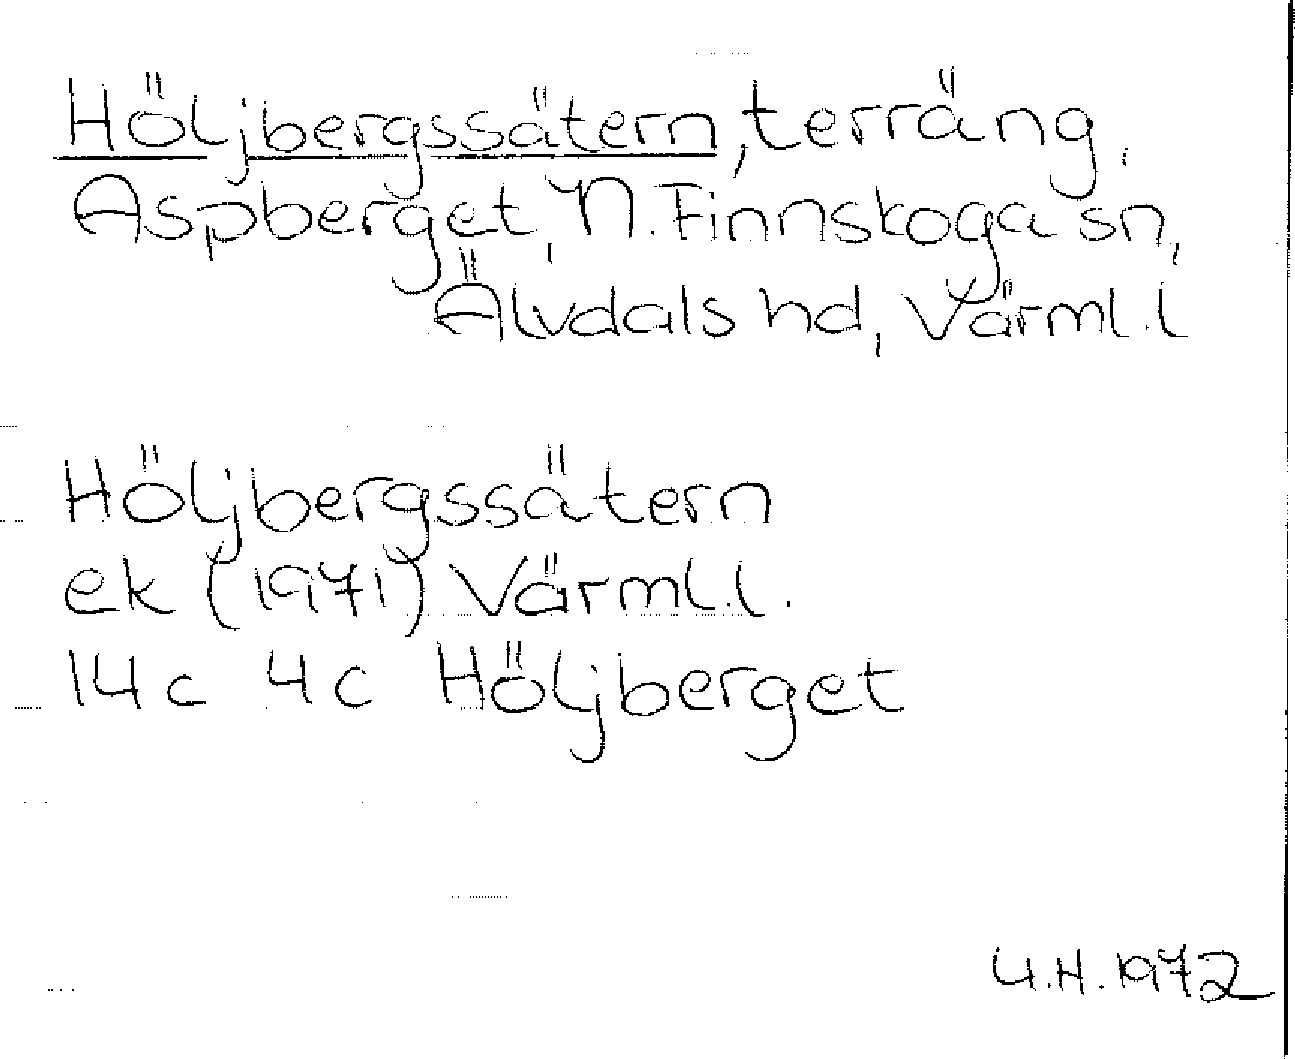 Höljbergssätern, terräng,
Aspberget, N. Finnskoga sn,
Älvdals hd, Värml. l
Höljbergssätern
ek (1971) Värml. l.
14c 4c Höljberget
U.H. 1972